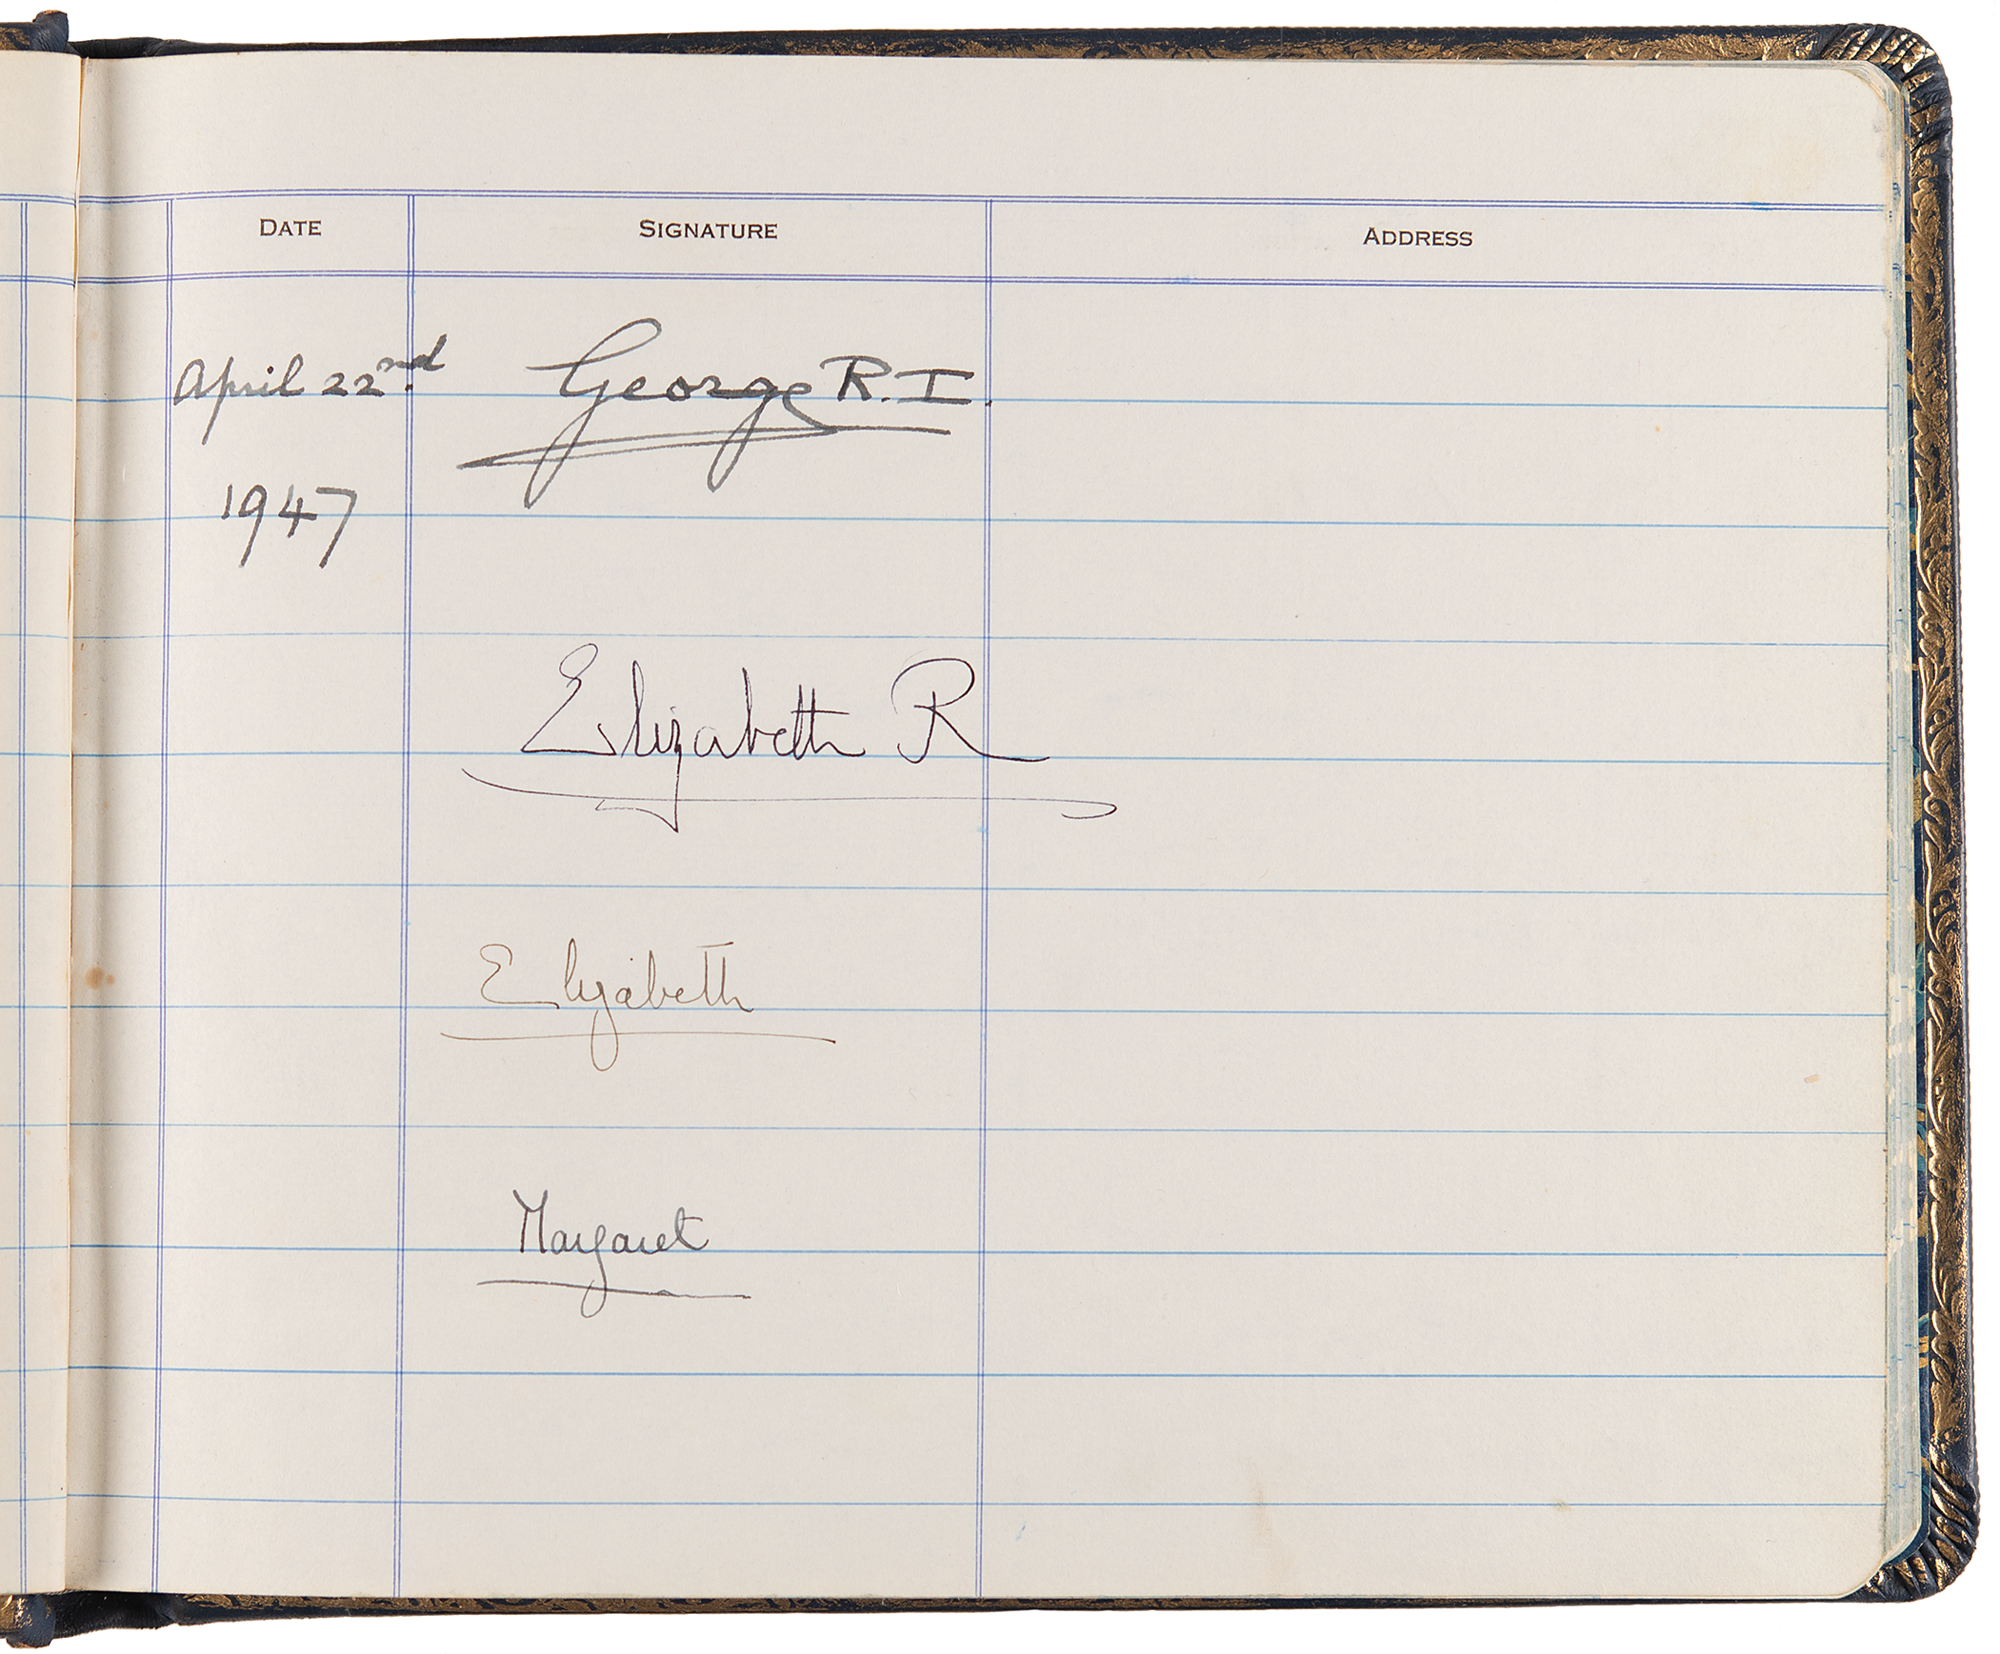 DATE SIGNATURE ADDRESS
April 22nd. George R.I.
1947
Elizabeth R
Elizabeth
Margaret